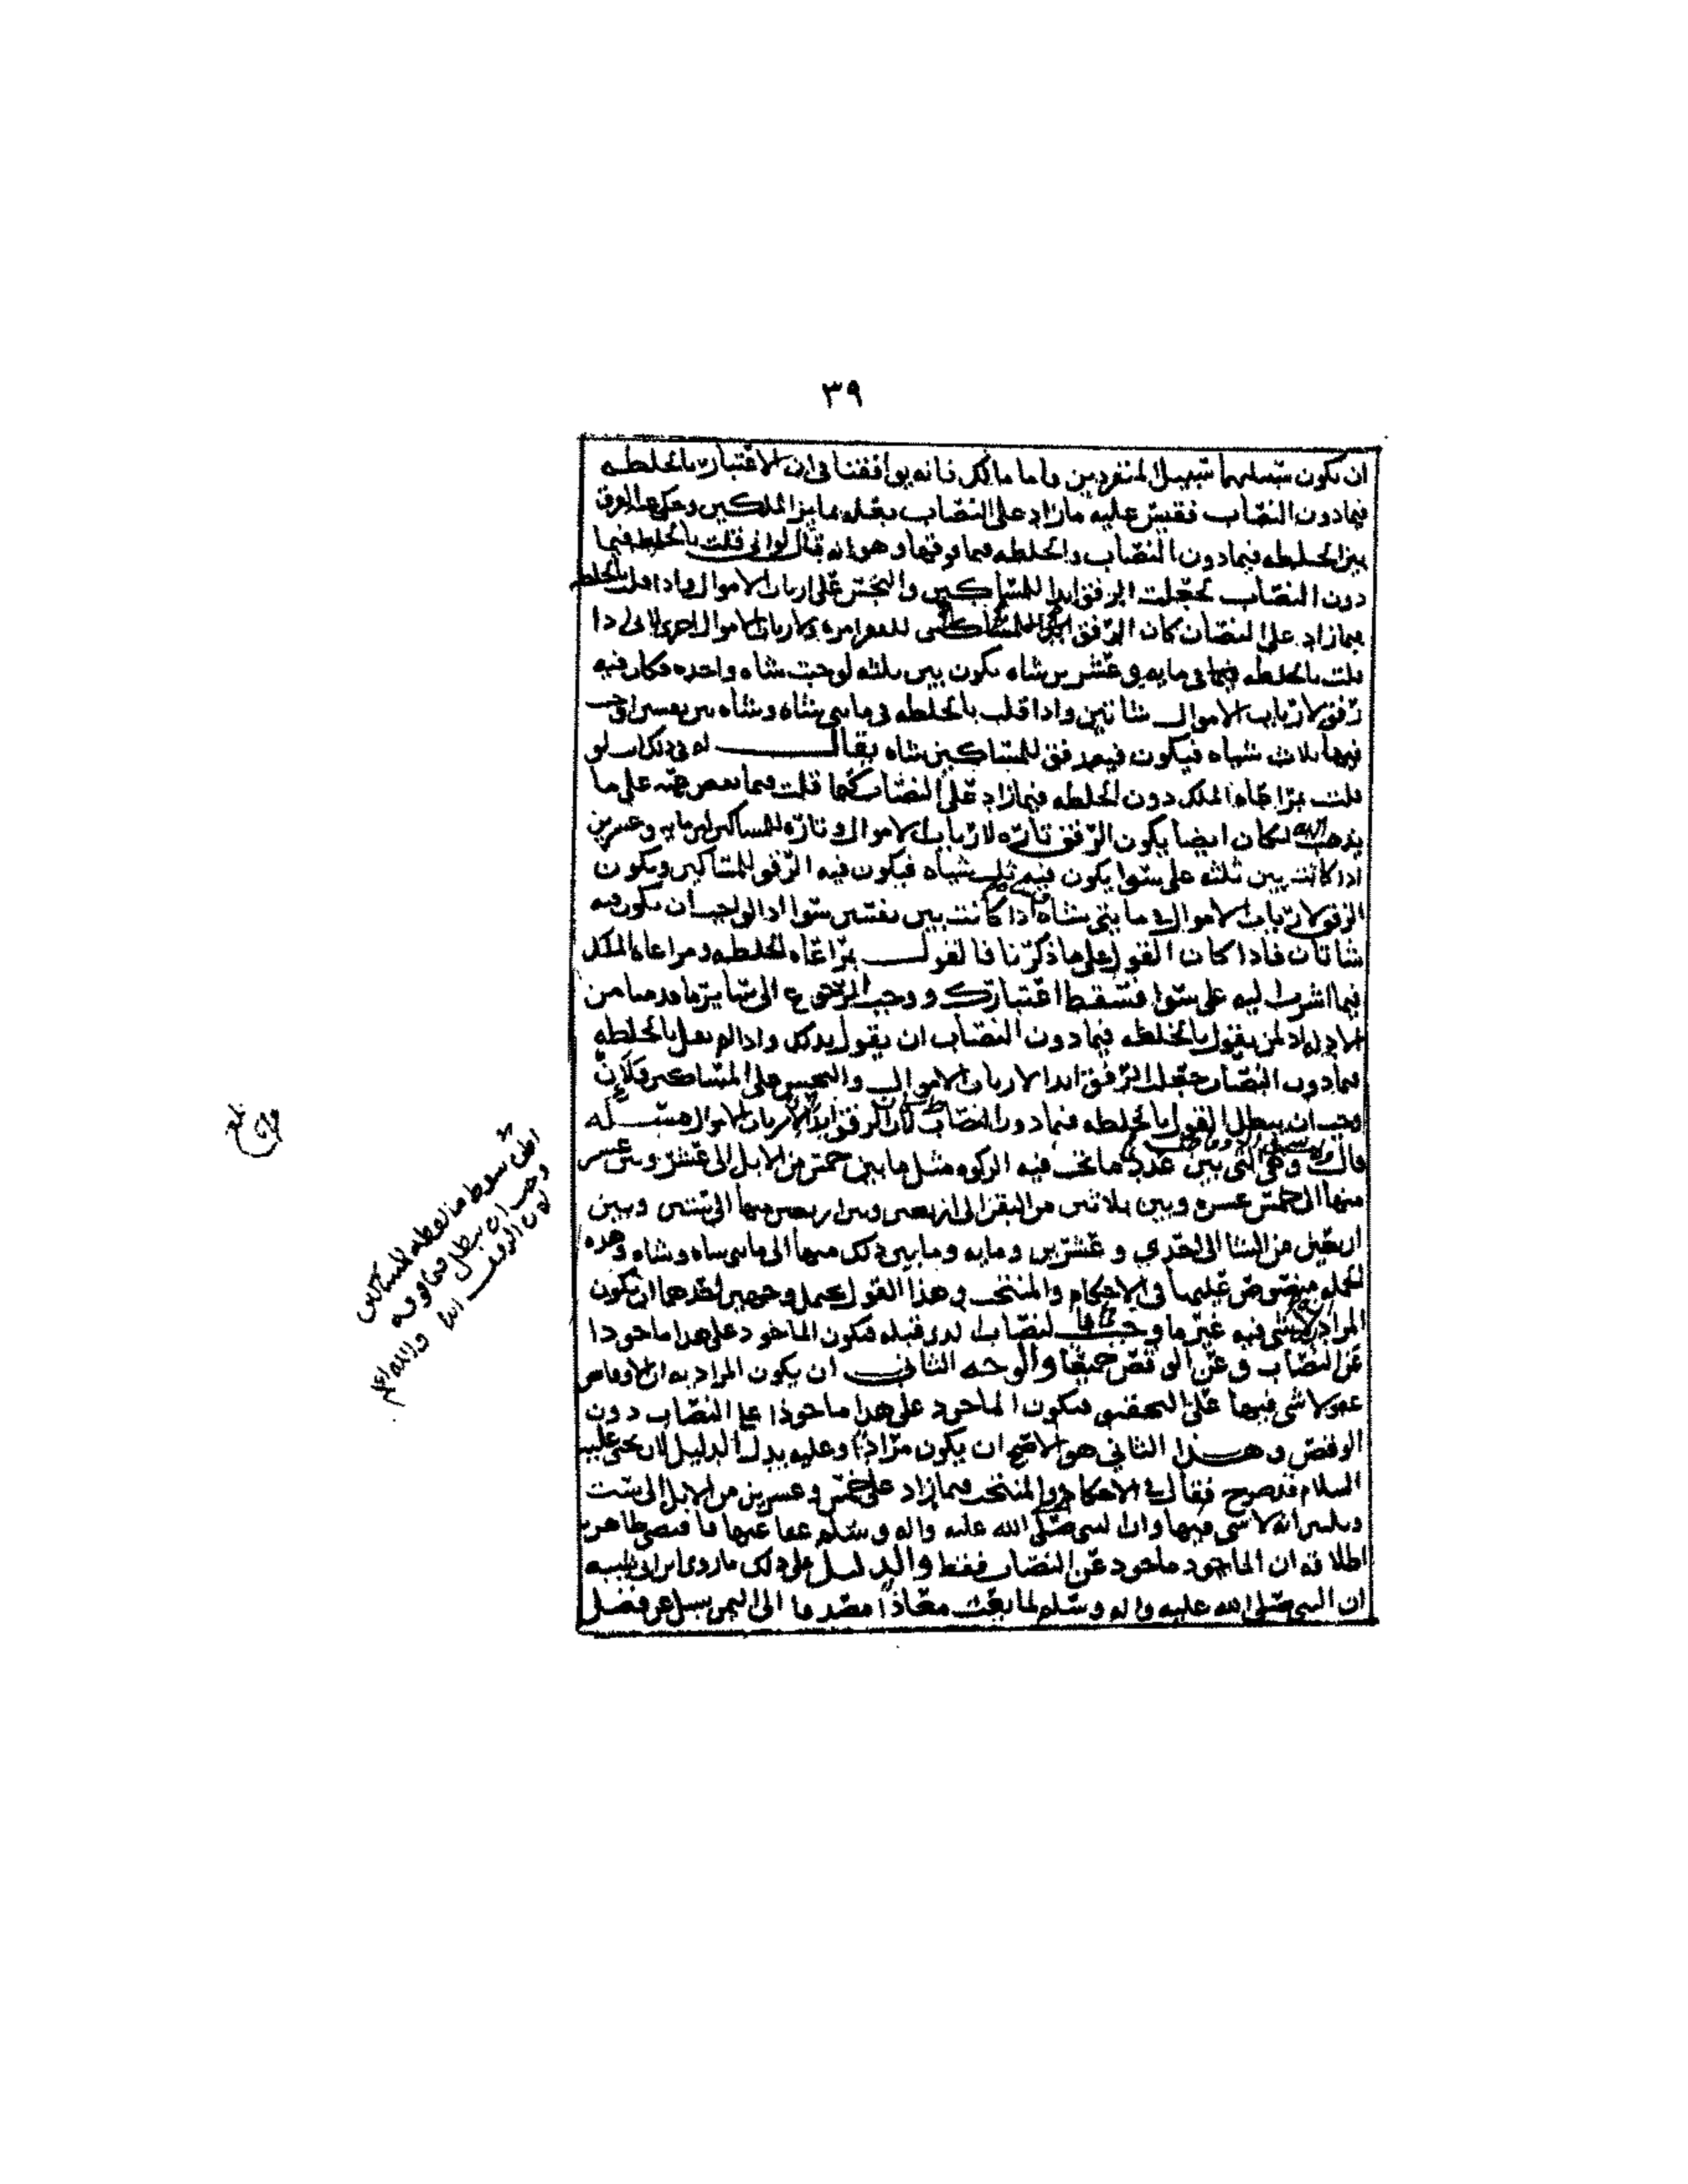 ٣٩
ان يكون سبيلهما سبيل المنفردين واما مالك فانه يوافقنا في ان الاعتبار بالخلطه
فيما دون النصاب فنقيس عليه ما زاد على النصاب بعله تمايز الملكين وحكي عنه الفرق
بين الخلطه فيما دون النصاب والخلطه فيما فوقها وهو انه قال لو اني قلت بالخلطه فيما
دون النصاب لجعلت الرفق ابدا للمساكين والبخس على ارباب الاموال واذا قلت بالخلطه
فيما زاد على النصاب كان الرفق للمساكين مره ولارباب الاموال اخرى الاترى اذا
قلت بالخلطه في مايه وعشرين شاه تكون بين ثلثه لوجبت شاه واحده فكان فيه
رفق لارباب الاموال شاتين واذا قلت بالخلطه في مايتي شاه وشاه بين نفسين اوجبت
فيها ثلاث شياه فيكون فيه رفق للمساكين شاه يقال له في ذلك ان لو
قلت بمراعاه الملك دون الخلطه فيما زاد على النصاب كما قلت فيما نقص عنه على ما
يذهب اليه لكان ايضا يكون الرفق تاره لارباب الاموال وتاره للمساكين لان مايه وعشرين
اذا كانت بين ثلثه على سوا يكون فيه ثلث شياه فيكون فيه الرفق للمساكين ويكون
الرفق لارباب الاموال في مايتي شاه اذا كانت بين نفسين سوا اذ الواجب ان يكون فيه
شاتان فاذا كان القول على ما ذكرنا فالقول بمراعاه الخلطه ومراعاه الملك
فيما اشرت اليه على سوا فسقط اعتبارك ووجب الرجوع الى ساير ما قدمنا من
الادله اذ لمن يقول بالخلطه فيما دون النصاب ان يقول بذلك واذا لم نقل بالخلطه
فيما دون النصاب جعلت الرفق ابدا لارباب الاموال والبخس على المساكين فلان
وجب ان يبطل القول بالخلطه فيما دون النصاب لان الرفق ابدا لارباب الاموال مسله
قال وهي التي بين عدد ما تجب فيه الزكوه مثل ما بين خمس من الابل الى عشر وبين عشر
منها الى خمس عشره وبين ثلاثين من البقر الى اربعين وبين اربعين منها الى ستين وبين
اربعين من الشا الى احدى وعشرين ومايه وما بين ذلك منها الى مايتي شاه وشاه وهذه
الجمله منصوص عليها في الاحكام والمنتخب وهذا القول يحتمل وجهين احدهما ان يكون
المراد لا شي فيه غير ما وجب في النصاب الذي قبله فيكون الماخوذ على هذا ماخوذا
عن النصاب وعن الوقص جميعا والوجه الثاني ان يكون المراد به ان الاوقاص
عفو لا شي فيها على التحقيق فيكون الماخوذ على هذا ماخوذا عن النصاب دون
الوقص وهذا الثاني هو الاصح ان يكون مرادا وعليه يدل الدليل لان يحيى عليه
السلام قد صرح فقال في الاحكام والمنتخب فيما زاد على خمس وعشرين من الابل الى ست
وثلثين انه لا شي فيها وان النبي صلى الله عليه واله وسلم عفا عنها فاقتضى ظاهر
اطلاقه ان الماخوذ ماخوذ عن النصاب فقط والدليل على ذلك ما روى ابن ابي شيبه
ان النبي صلى الله عليه واله وسلم لما بعث معاذا مصدقا الى اليمن يسل عن فضل
وجب ان يبطل فيما فوقه
لان الرفق
والله اعلم